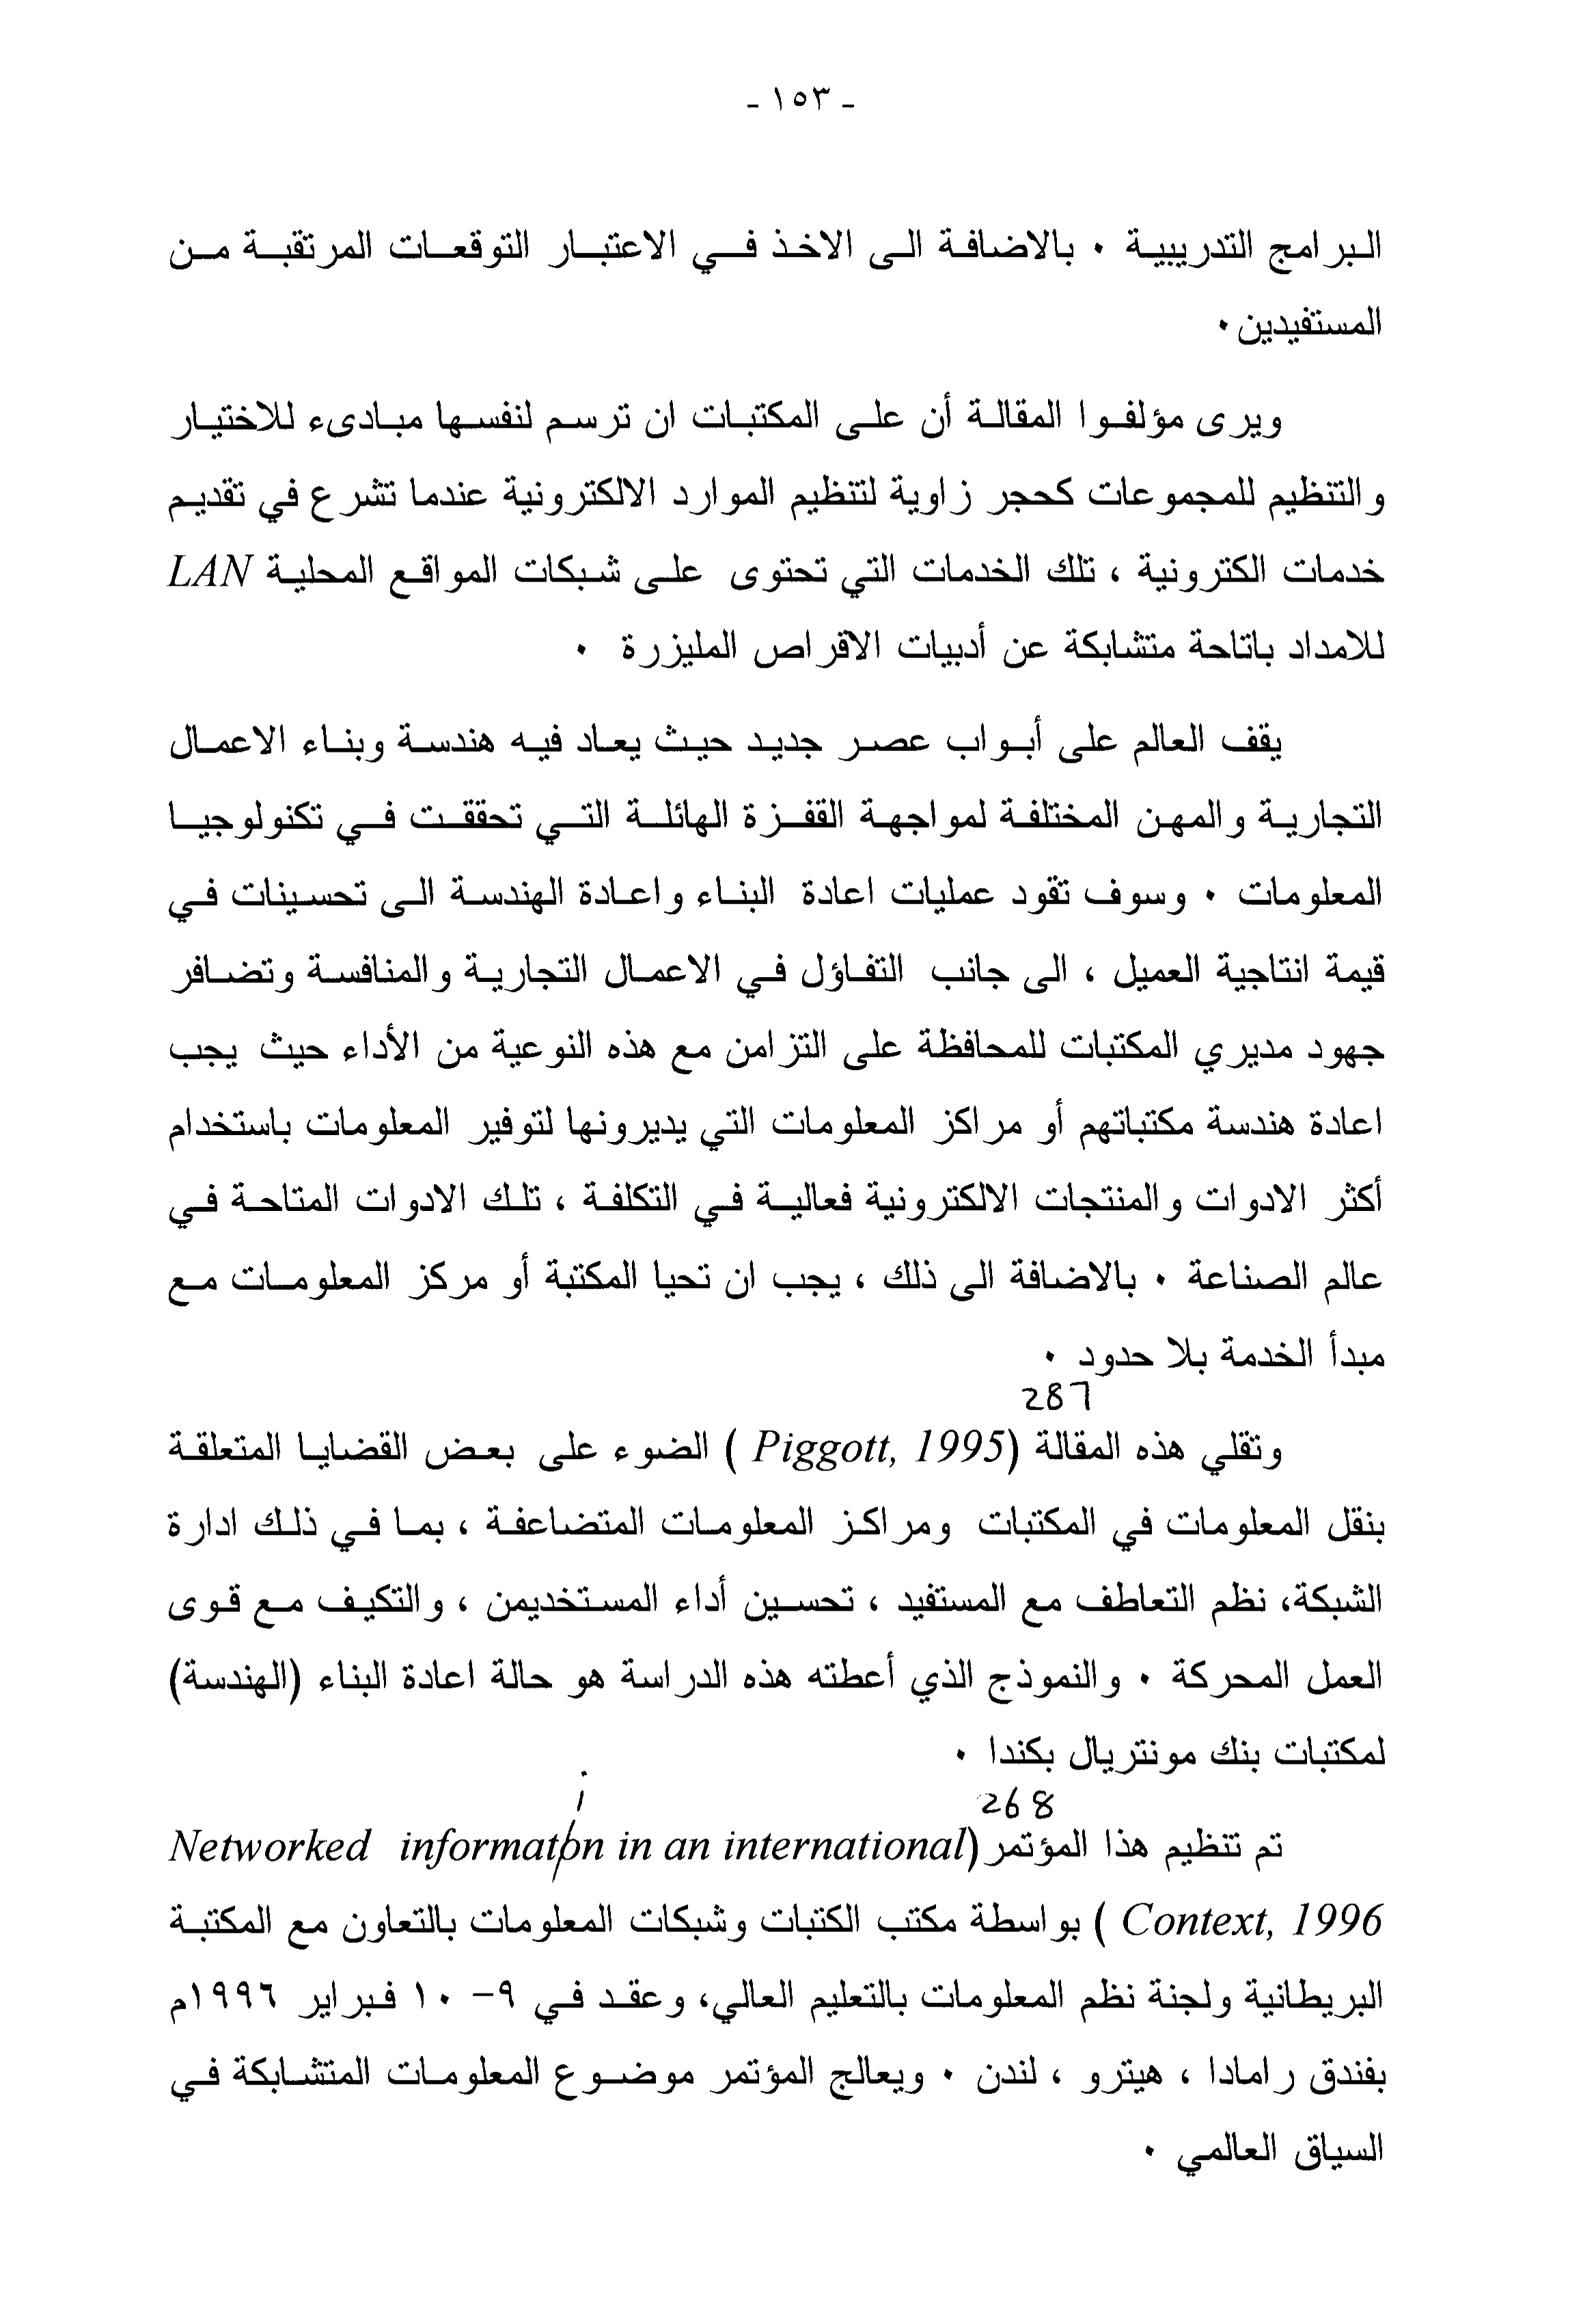 - ١٥٣ -
البرامج التدريبية ٠ بالاضافة الى الاخذ في الاعتبار التوقعات المرتقبة من
المستفيدين ٠
ويرى مؤلفوا المقالة أن على المكتبات ان ترسم لنفسها مبادىء للاختيار
والتنظيم للمجموعات كحجر زاوية لتنظيم الموارد الالكترونية عندما تشرع في تقديم
خدمات الكترونية ، تلك الخدمات التي تحتوى على شبكات المواقع المحلية LAN
للامداد باتاحة متشابكة عن أدبيات الاقراص المليزرة ٠
يقف العالم على أبواب عصر جديد حيث يعاد فيه هندسة وبناء الاعمال
التجارية والمهن المختلفة لمواجهة القفزة الهائلة التي تحققت في تكنولوجيا
المعلومات ٠ وسوف تقود عمليات اعادة البناء واعادة الهندسة الى تحسينات في
قيمة انتاجية العميل ، الى جانب التفاؤل في الاعمال التجارية والمنافسة وتضافر
جهود مديري المكتبات للمحافظة على التزامن مع هذه النوعية من الأداء حيث يجب
اعادة هندسة مكتباتهم أو مراكز المعلومات التي يديرونها لتوفير المعلومات باستخدام
أكثر الادوات والمنتجات الالكترونية فعالية في التكلفة ، تلك الادوات المتاحة في
عالم الصناعة ٠ بالاضافة الى ذلك ، يجب ان تحيا المكتبة أو مركز المعلومات مع
مبدأ الخدمة بلا حدود ٠
287
وتقلي هذه المقالة (Piggott, 1995 ) الضوء على بعض القضايا المتعلقة
بنقل المعلومات في المكتبات ومراكز المعلومات المتضاعفة ، بما في ذلك ادارة
الشبكة، نظم التعاطف مع المستفيد ، تحسين أداء المستخديمن ، والتكيف مع قوى
العمل المحركة ٠ والنموذج الذي أعطته هذه الدراسة هو حالة اعادة البناء (الهندسة)
لمكتبات بنك مونتريال بكندا ٠
268
i
تم تنظيم هذا المؤتمر (Networked informaton in an international
Context, 1996 ) بواسطة مكتب الكتبات وشبكات المعلومات بالتعاون مع المكتبة
البريطانية ولجنة نظم المعلومات بالتعليم العالي، وعقد في ٩- ١٠ فبراير ١٩٩٦م
بفندق رامادا ، هيثرو ، لندن ٠ ويعالج المؤتمر موضوع المعلومات المتشابكة في
السياق العالمي ٠